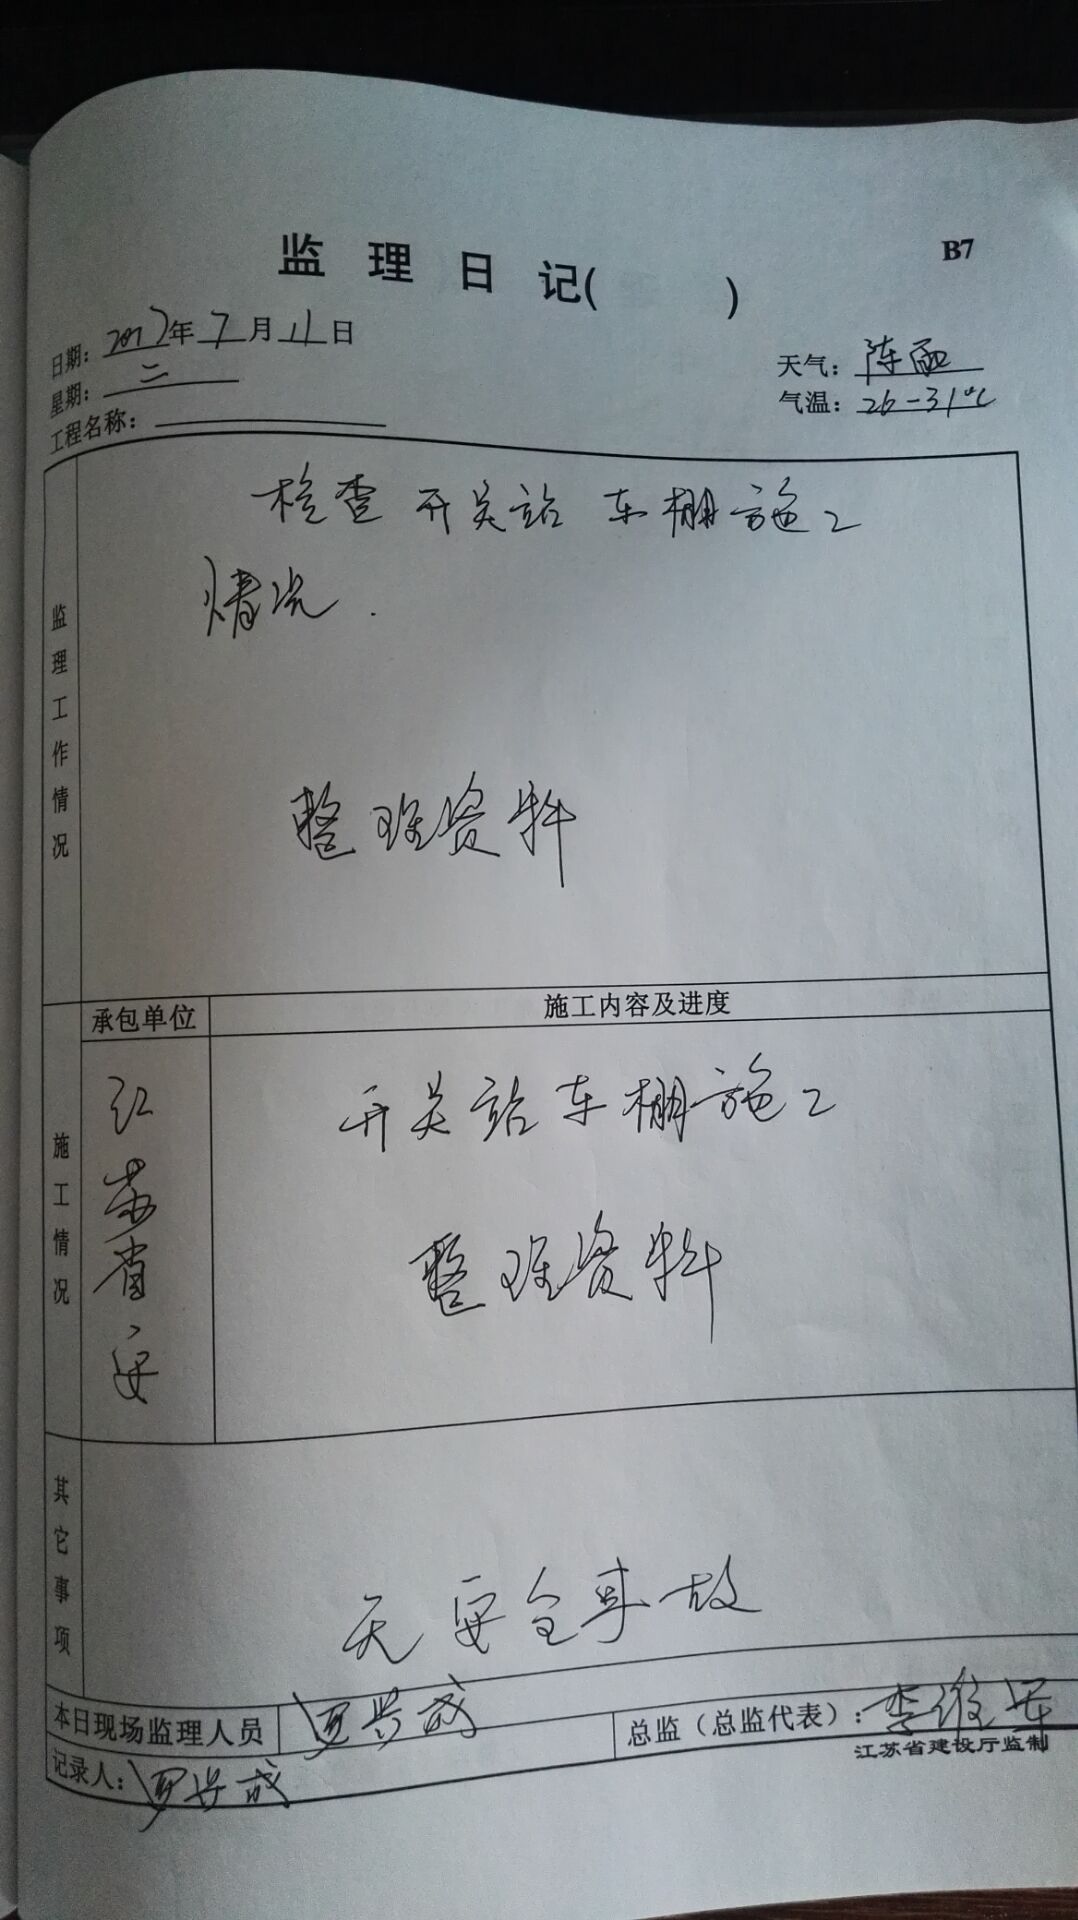 B7
监理日记( )
日期: 2017年7月11日
天气: 阵雨
星期: 二
气温: 26-31℃
工程名称:
监理工作情况
检查开关站车棚施工
情况.
整理资料
承包单位
施工内容及进度
施工情况
江苏省安
开关站车棚施工
整理资料
其它事项
无安全事故
本日现场监理人员
总监（总监代表）: 李维军
江苏省建设厅监制
记录人: